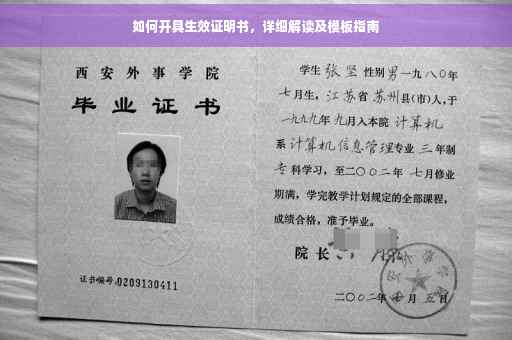 如何开具生效证明书，详细解读及模板指南
西安外事学院
毕业证书
证书编号:0209130411
学生 张坚 性别 男 一九八〇年
七月生，江苏省 苏州县(市)人，于
一九九九年 九月入本院 计算机
系 计算机信息管理专业 三 年制
专科学习，至二〇〇二年 七月修业
期满，学完教学计划规定的全部课程，
成绩合格，准予毕业。
院长
二〇〇二年 月 五日